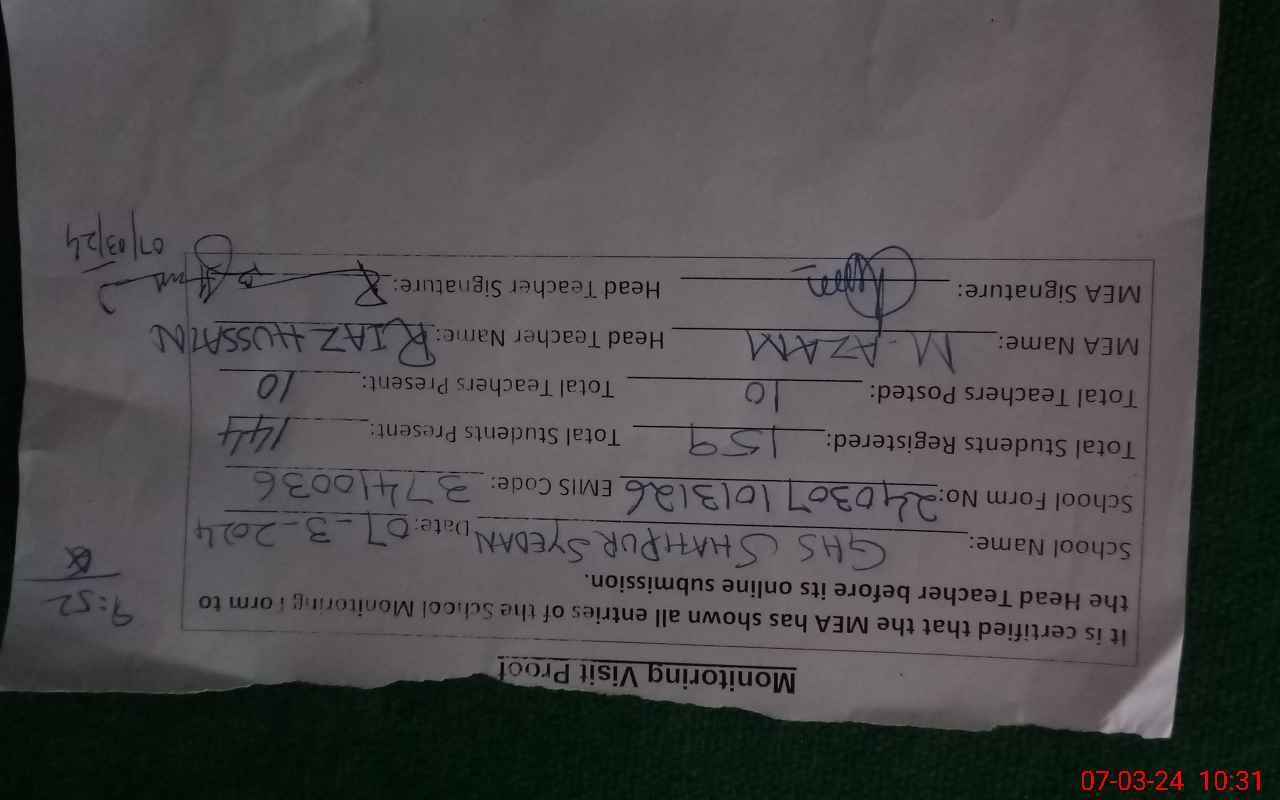 Monitoring Visit Proof
It is certified that the MEA has shown all entries of the School Monitoring Form to
the Head Teacher before its online submission.
9:52
School Name: GHS SHAHPUR SYEDAN Date: 07-3-2024
School Form No: 2403071013126 EMIS Code: 37410036
Total Students Registered: 159 Total Students Present: 144
Total Teachers Posted: 10 Total Teachers Present: 10
MEA Name: M. AZAM Head Teacher Name: RIAZ HUSSAIN
MEA Signature: Head Teacher Signature:
07/03/24
07-03-24 10:31